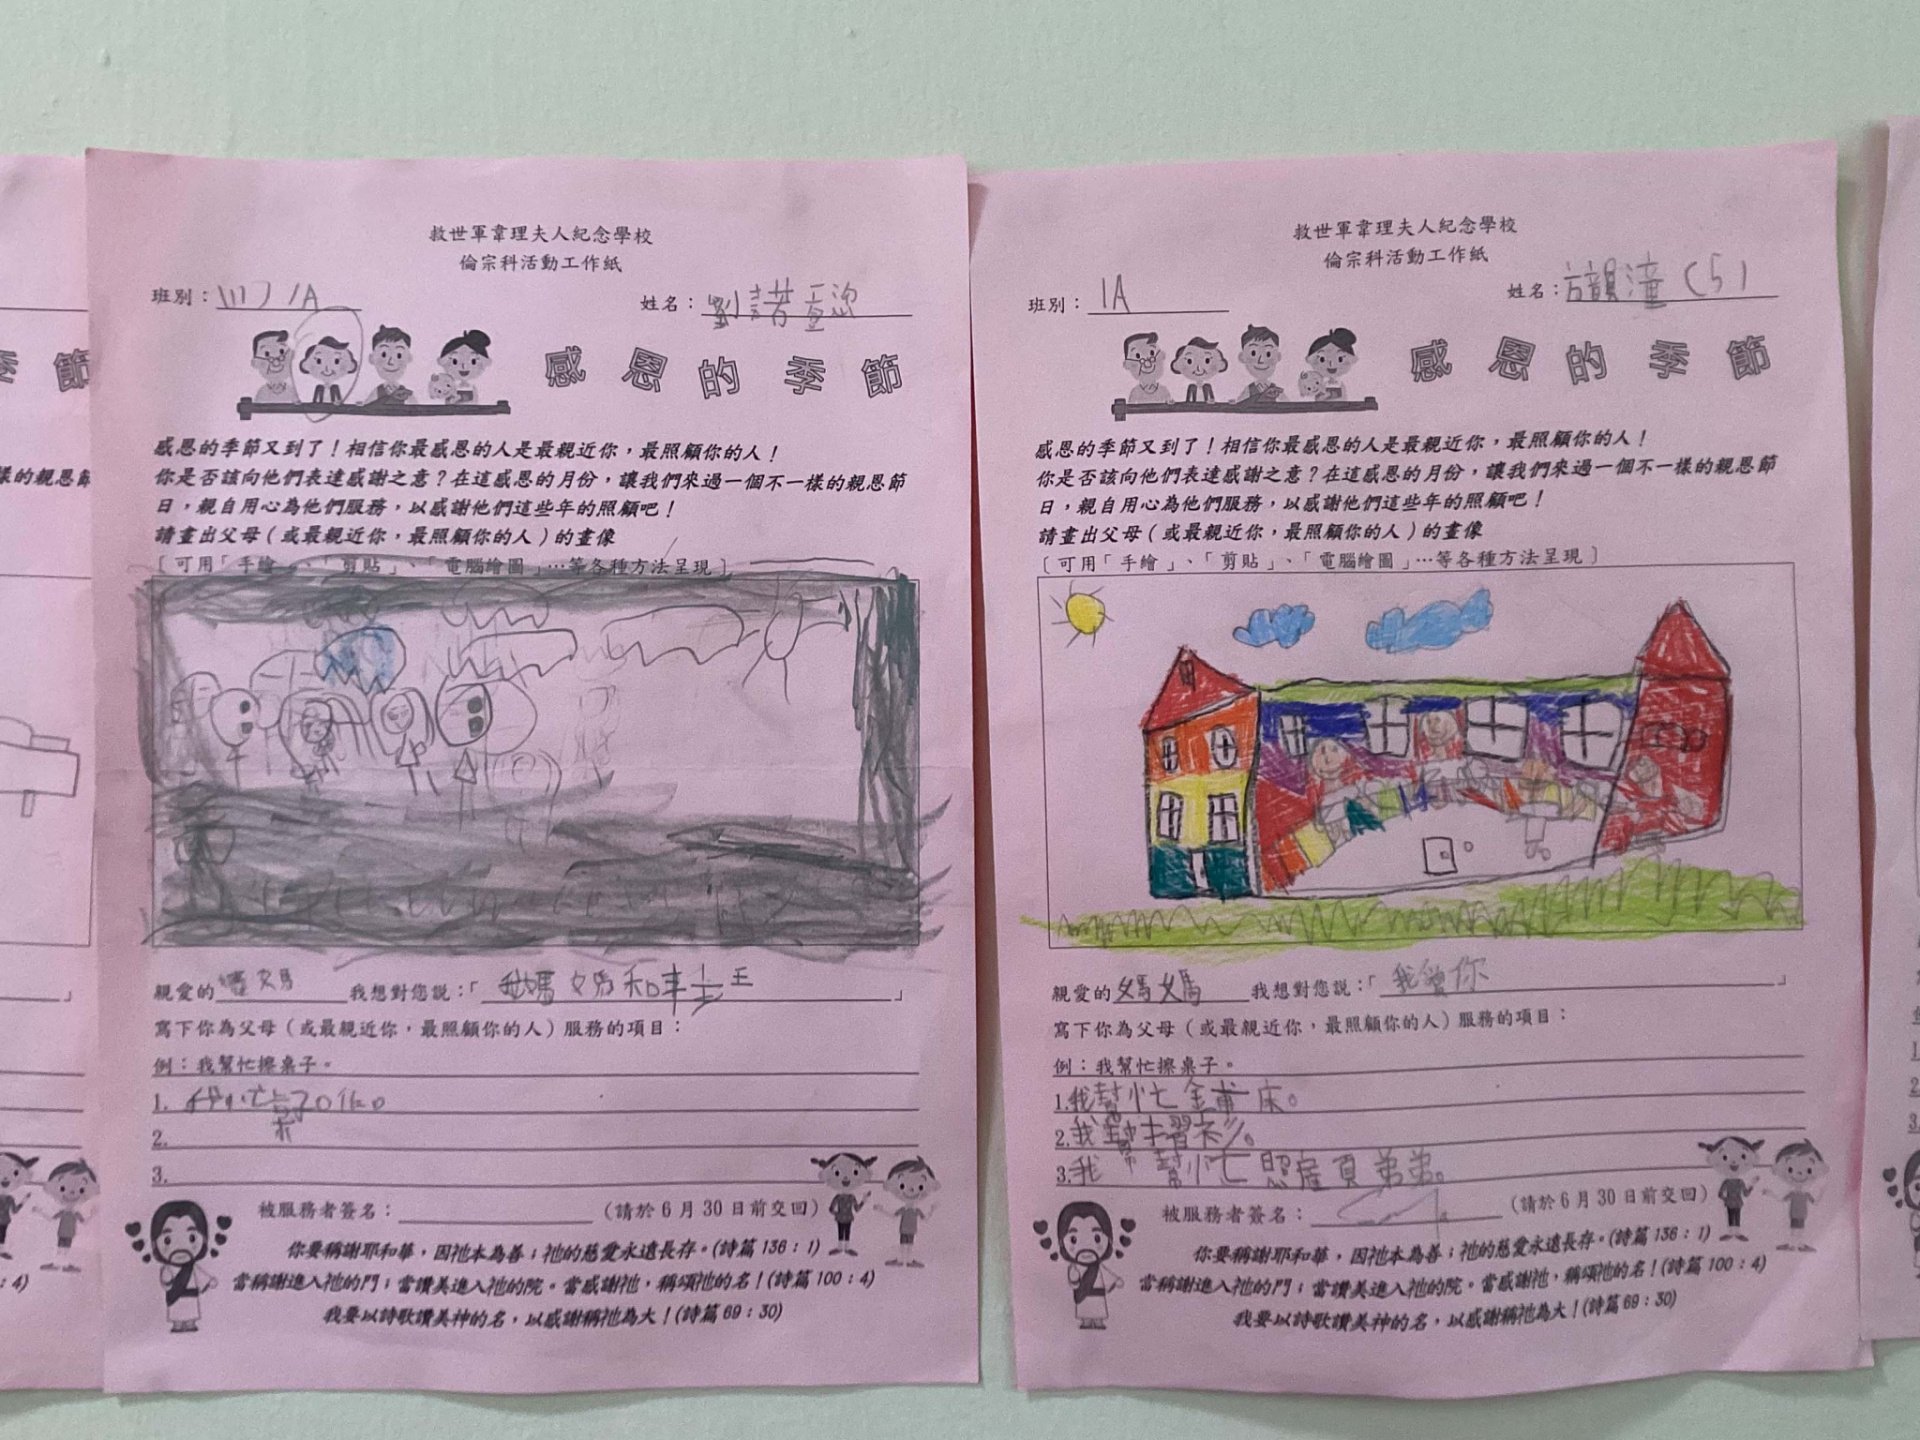 季 節
樣的親恩節
」
：4)
救世軍韋理夫人紀念學校
倫宗科活動工作紙
班別：1A
姓名：劉諾
感 恩 的 季 節
感恩的季節又到了！相信你最感恩的人是最親近你，最照顧你的人！
你是否該向他們表達感謝之意？在這感恩的月份，讓我們來過一個不一樣的親恩節
日，親自用心為他們服務，以感謝他們這些年的照顧吧！
請畫出父母（或最親近你，最照顧你的人）的畫像
〔可用「手繪」、「剪貼」、「電腦繪圖」…等各種方法呈現〕
親愛的媽媽 我想對您說：「媽媽和」
寫下你為父母（或最親近你，最照顧你的人）服務的項目：
例：我幫忙擦桌子。
1.
2.
3.
被服務者簽名： （請於6月30日前交回）
你要稱謝耶和華，因祂本為善；祂的慈愛永遠長存。(詩篇136：1)
當稱謝進入祂的門；當讚美進入祂的院。當感謝祂，稱頌祂的名！(詩篇100：4)
我要以詩歌讚美神的名，以感謝稱祂為大！(詩篇69：30)
救世軍韋理夫人紀念學校
倫宗科活動工作紙
班別：1A
姓名：方韻潼（5）
感 恩 的 季 節
感恩的季節又到了！相信你最感恩的人是最親近你，最照顧你的人！
你是否該向他們表達感謝之意？在這感恩的月份，讓我們來過一個不一樣的親恩節
日，親自用心為他們服務，以感謝他們這些年的照顧吧！
請畫出父母（或最親近你，最照顧你的人）的畫像
〔可用「手繪」、「剪貼」、「電腦繪圖」…等各種方法呈現〕
親愛的媽媽 我想對您說：「我愛你」
寫下你為父母（或最親近你，最照顧你的人）服務的項目：
例：我幫忙擦桌子。
1.我幫忙鋪床。
2.我
3.我幫忙照顧弟弟。
被服務者簽名： （請於6月30日前交回）
你要稱謝耶和華，因祂本為善；祂的慈愛永遠長存。(詩篇136：1)
當稱謝進入祂的門；當讚美進入祂的院。當感謝祂，稱頌祂的名！(詩篇100：4)
我要以詩歌讚美神的名，以感謝稱祂為大！(詩篇69：30)